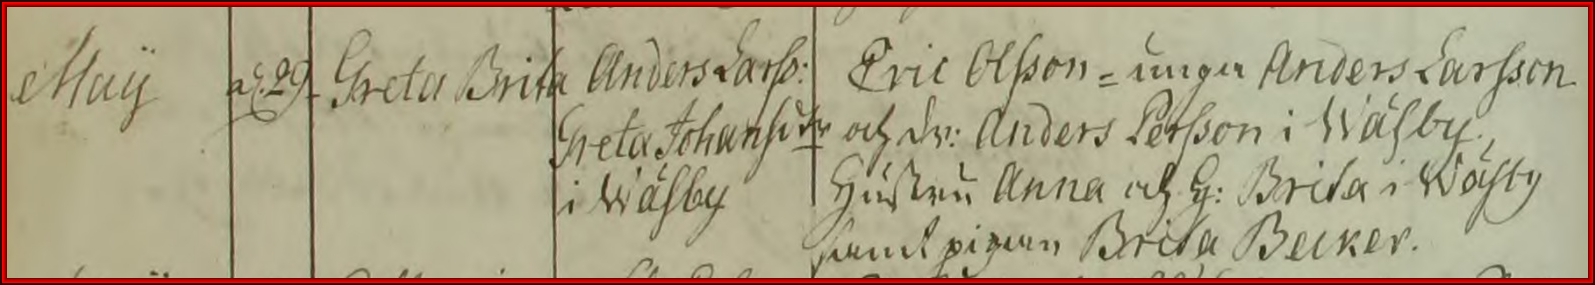 Maÿ d. 29. Greta Brita Anders Larss: Eric Olsson = unga Anders Larsson
Greta Johansdr och dr: Anders Persson i Wäsby,
i Wäsby Hustru Anna och H: Brita i Wäsby
samt pigan Brita Becker.